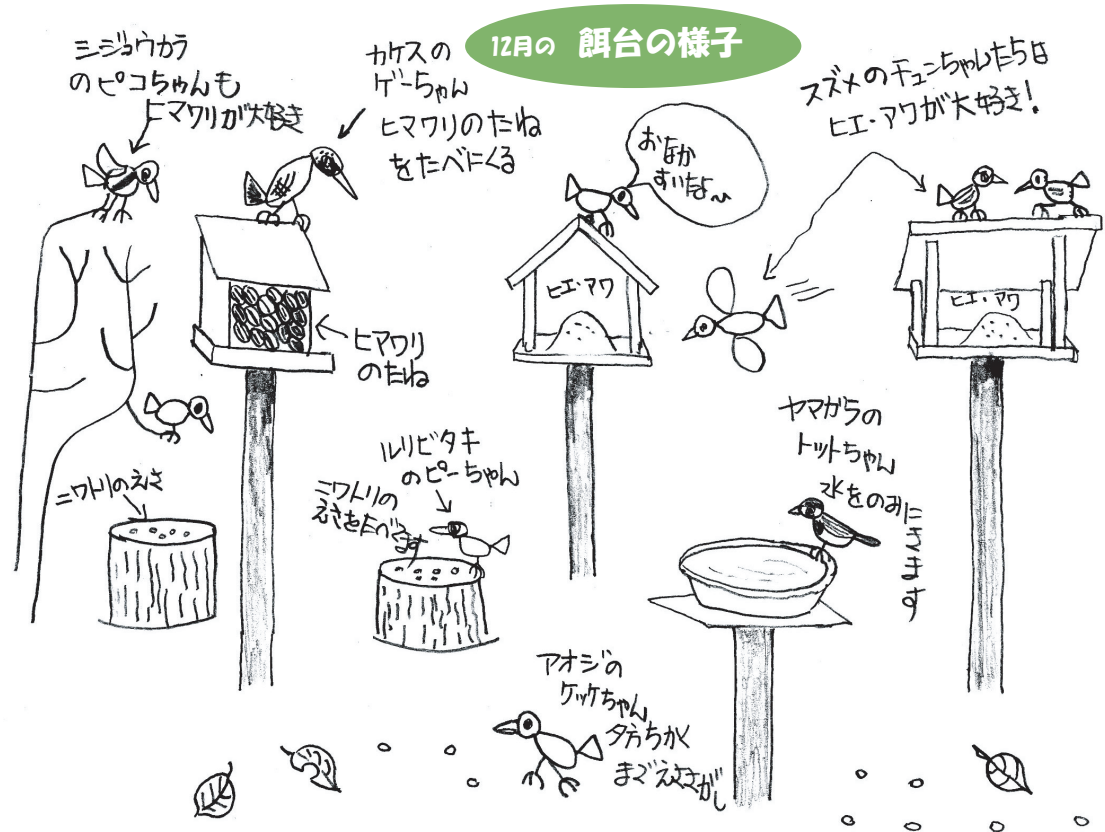 12月の 餌台の様子
シジュウカラ
のピコちゃんも
ヒマワリが大好き
カケスの
ゲーちゃん
ヒマワリのたね
をたべにくる
おなか
すいたよ〜
スズメのチュンちゃんたちは
ヒエ・アワが大好き!
ヒエ・アワ
ヒエ・アワ
ヒマワリ
のたね
ニワトリのえさ
ルリビタキ
のピーちゃん
ニワトリの
えさをたべ
ます
ヤマガラの
トットちゃん
水をのみに
きます
アオジの
ケッケちゃん
夕方ちかく
までえささがし